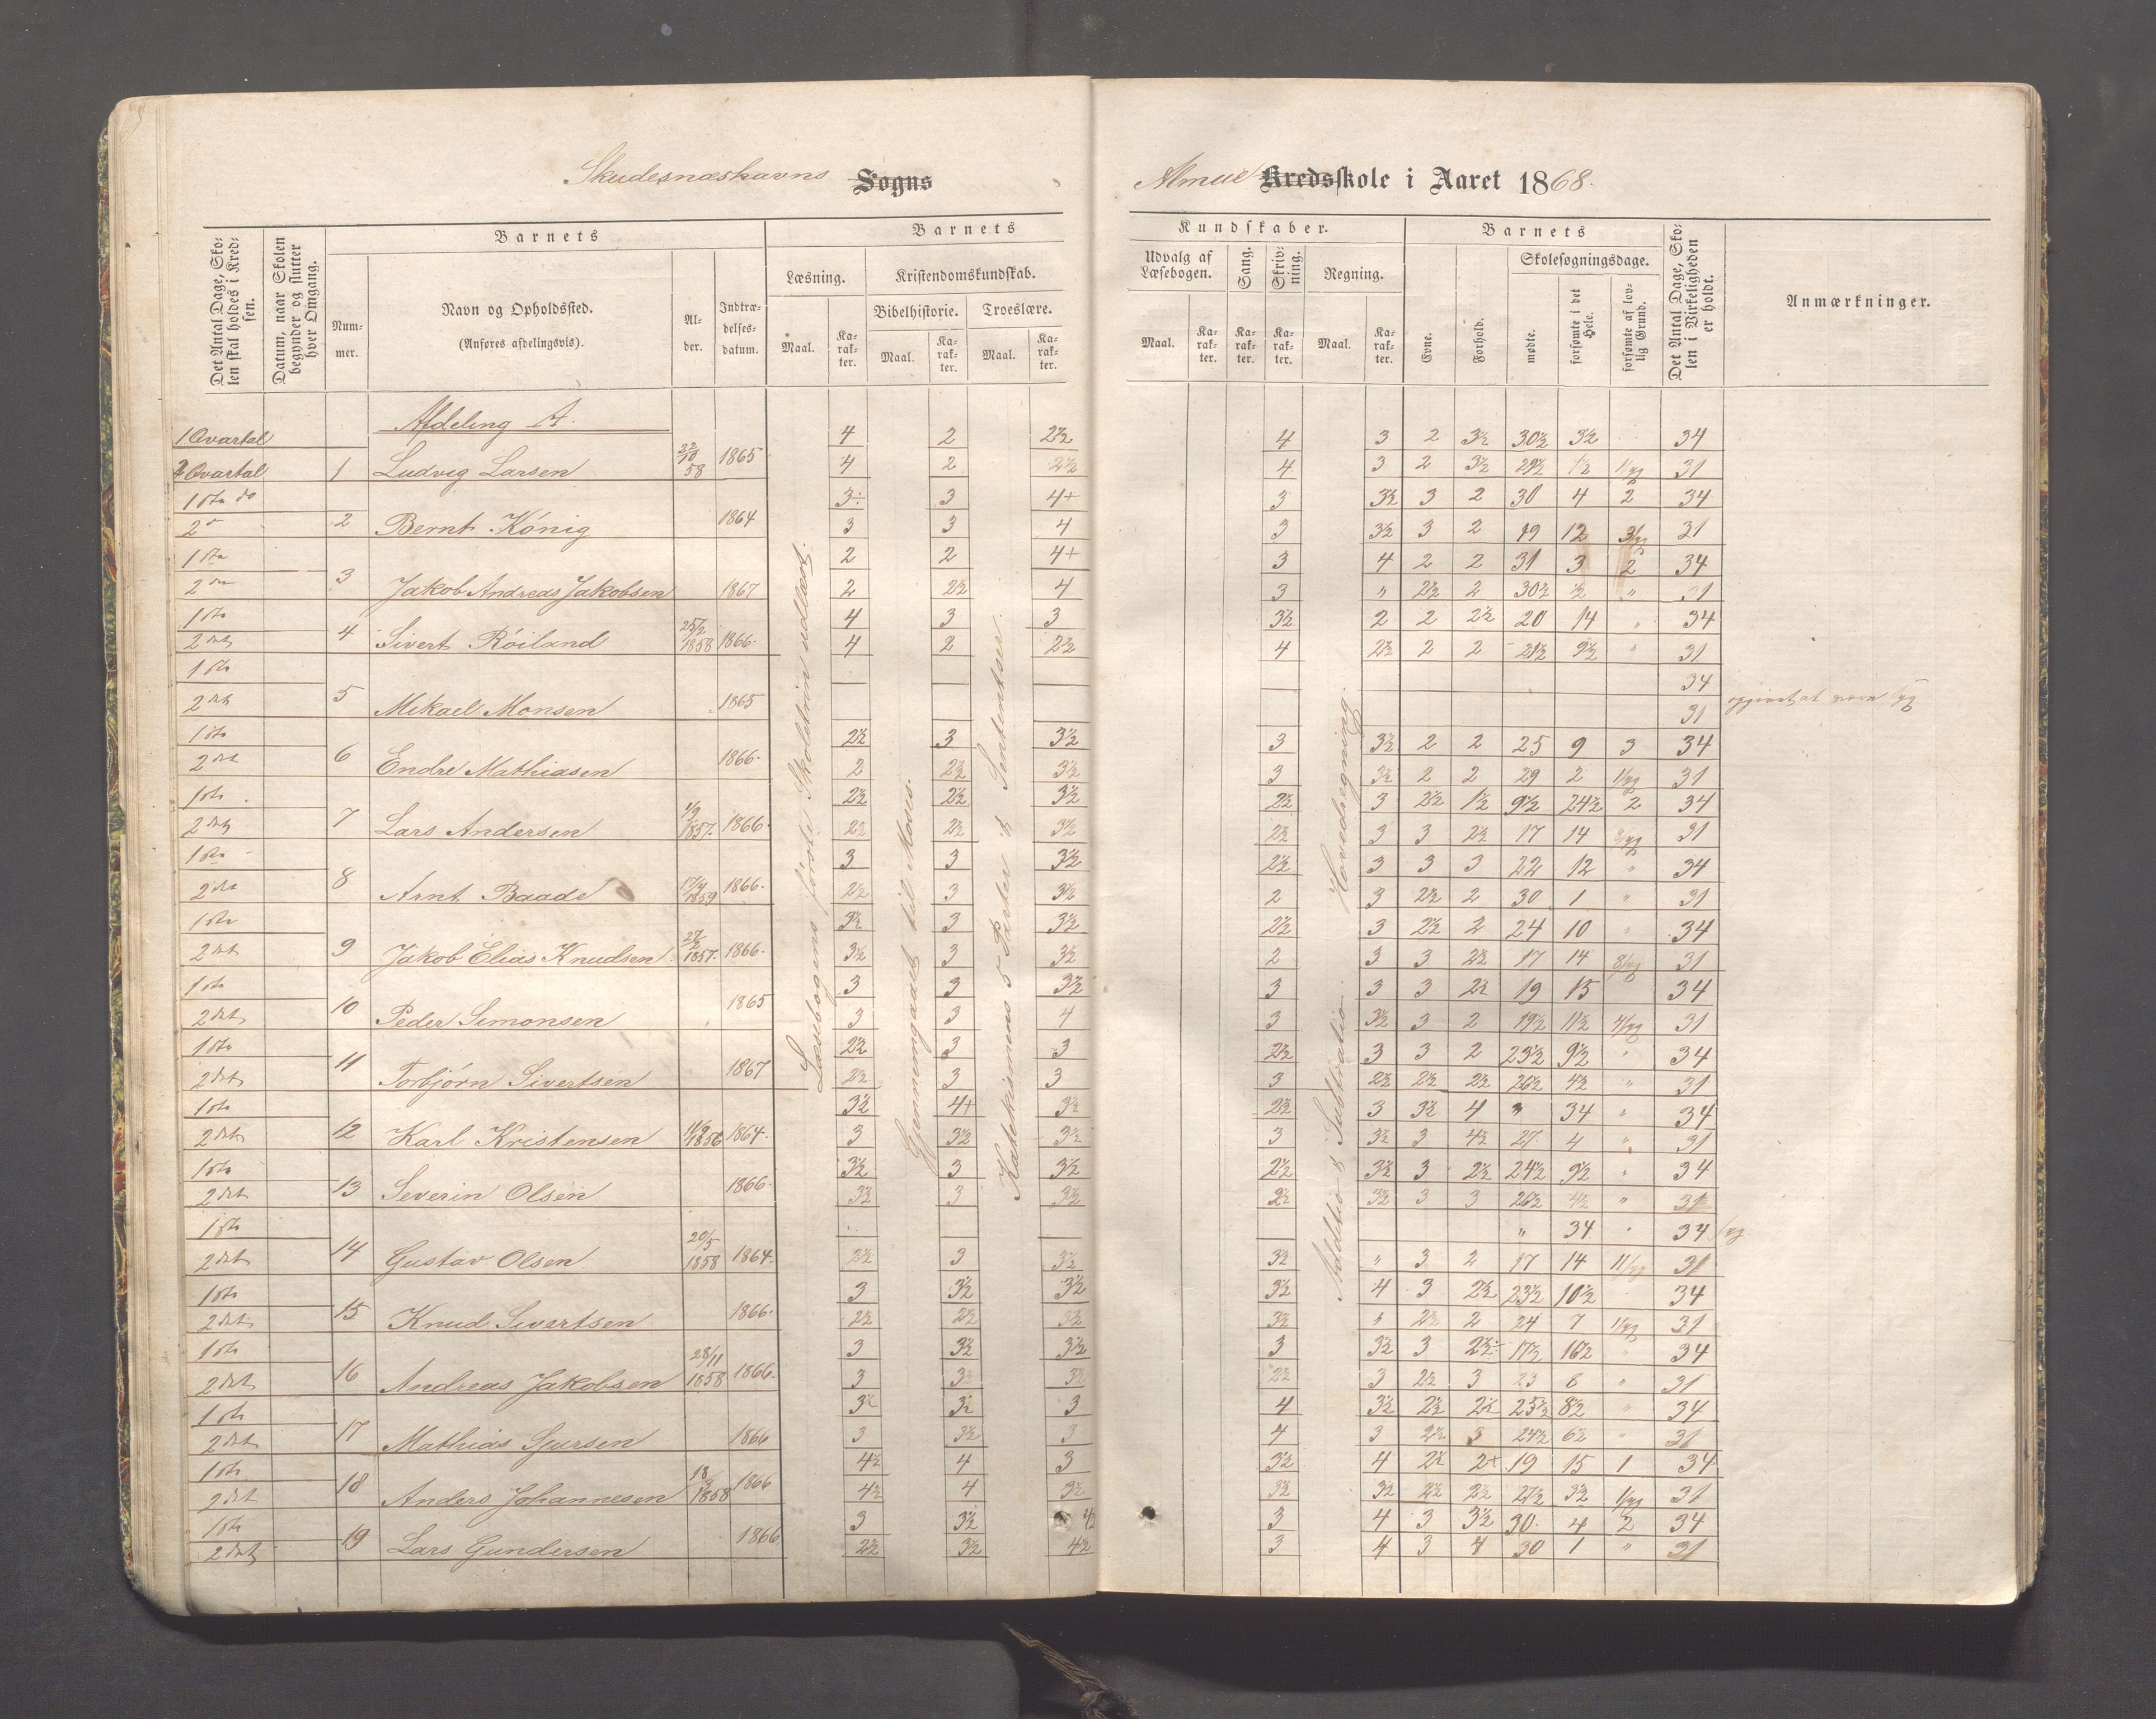 Skudesnæshavns Sogns
Almue Kredsskole i Aaret 1868.
Det Antal Dage, Skolen skal holdes i Kredsen.
Datum, naar Skolen begynder og slutter hver Omgang.
Barnets
Nummer.
Navn og Opholdssted.
(Anføres afdelingsvis).
Alder.
Indtrædelsesdatum.
Barnets
Læsning.
Maal.
Karakter.
Kristendomskundskab.
Bibelhistorie.
Maal.
Karakter.
Troeslære.
Maal.
Karakter.
Kundskaber.
Udvalg af Læsebogen.
Maal.
Karakter.
Sang.
Karakter.
Skrivning.
Karakter.
Regning.
Maal.
Karakter.
Barnets
Evne.
Forhold.
Skolesøgningsdage.
mødte.
forsømte i det Hele.
forsømte af lovlig Grund.
Det Antal Dage, Skolen i Virkeligheden er holdt.
Anmærkninger.
Afdeling A.
1 Qvartal 4 2 2½ 4 3 2 3½ 30½ 3½ 34
2 Qvartal 1 Ludvig Larsen 58 1865 4 2 2½ 4 3 2 3½ 29½ 31
1ste do 3÷ 3 4+ 3 3½ 3 2 30 4 2 34
2 2 Bernt König 1864 3 3 4 3 3½ 3 2 19 12 31
1ste 2 2 4+ 3 4 2 2 31 3 2 34
2 3 Jakob Andreas Jakobsen 1867 2 2½ 4 3 " 2½ 2 30½ ½ " 31
1ste 4 3 3 3½ 2 2 2½ 20 14 " 34
2det 4 Sivert Röiland 1858 1866. 4 2 2½ 4 2½ 2 2 21½ 9½ " 31
1ste 34
2det 5 Mikael Monsen 1865 31 opgivet at være syg
1ste 2½ 3 3½ 3 3½ 2 2 25 9 3 34
2det 6 Endre Mathiasen 1866. 2 2½ 3½ 3 3½ 2 2 29 2 31
1ste 2½ 2½ 3½ 2½ 3 2½ 1½ 9½ 24½ 2 34
2det 7 Lars Andersen 1857. 1866. 2½ 2½ 3½ 2½ 3 3 2½ 17 14 31
1ste 3 3 3½ 2½ 3 3 3 22 12 " 34
2det 8 Arnt Baade 1859 1866. 2½ 3 3½ 2 3 2½ 2 30 1 " 31
1ste 3½ 3 3½ 2½ 3 2½ 2 24 10 " 34
2det 9 Jakob Elias Knudsen 1857. 1866. 3½ 3 3½ 2 3 3 2½ 17 14 31
1ste 3 3 3½ 3 3 3 2½ 19 15 34
2det 10 Peder Simonsen 1865 3 3 4 3 3½ 3 2 19½ 11½ 31
1ste 2½ 3 3 2½ 3 3 2 23½ 9½ " 34
2det 11 Torbjörn Sivertsen 1867 2½ 3 3 3 2½ 2½ 2½ 26½ 4½ " 31
1ste 3½ 4+ 3½ 2½ 3 3½ 4 " 34 " 34
2det 12 Karl Kristensen 1856 1864. 3 3½ 3½ 3 3½ 3 4½ 27 4 " 31
1ste 3½ 3 3½ 2½ 3½ 3 2½ 24½ 9½ " 34
2det 13 Severin Olsen 1866. 3½ 3 3½ 2½ 3½ 3 3 26½ 4½ " 31
1ste " 34 " 34 syg
2det 14 Gustav Olsen 20/5 1858 1864. 2½ 3 3½ 3½ " 3 2 17 14 31
1ste 3 3½ 3½ 3½ 4 3 2½ 23½ 10½ 34
2det 15 Knud Sivertsen 1866. 2½ 2½ 3½ 3½ " 2½ 2 24 7 31
1ste 3 3½ 3½ 3 3½ 3 2½÷ 17½ 16½ " 34
2det 16 Andreas Jakobsen 28/11 1858 1866. 3 3½ 3½ 2½ 3 2½ 3 23 8 " 31
1ste 3½ 3½ 3 4 3½ 2½ 2½ 25½ 8½ " 34
2det 17 Mathias Sjursen 1866 3 3½ 3 4 3 2½ 3 24½ 6½ " 31
1ste 4½ 4 3 3½ 4 2½ 2+ 19 15 1 34
2det 18 Anders Johannesen 1858 1866 4½ 4 3½ 3½ 3½ 2½ 2½ 27½ 3½ 31
1ste 3 3½ 3 4 3 3½ 30. 4 2 34
2det 19 Lars Gundersen 1866 2½ 3½ 4½ 3 4 3 4 30 1 " 31
Læsebogens förste Skoletrin udlæst.
Gjennemgaaet til Moses.
Katekismens 5 Parter & Sententser.
Additio & Subtratio. Hovedregning.